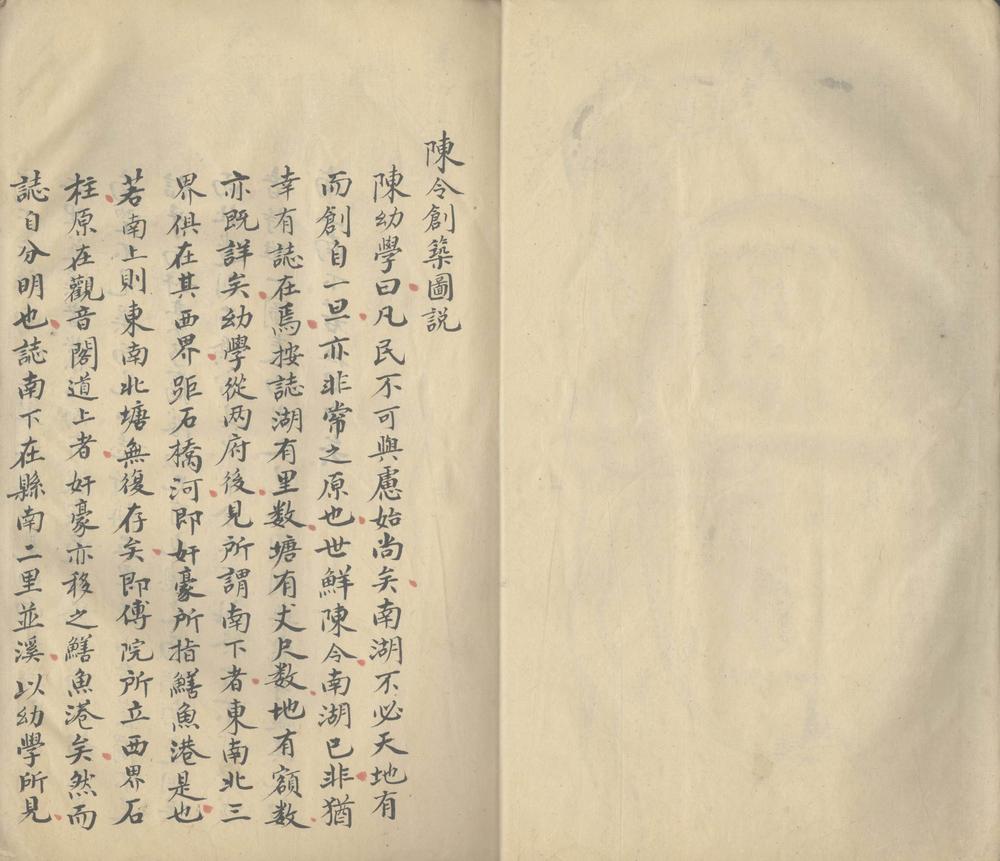 陳令創築圖説
陳幼學曰凡民不可與慮始尚矣南湖不必天地有
而創自一旦亦非常之原也世鮮陳令南湖已非猶
幸有誌在焉按誌湖有里数塘有丈尺数地有額数
亦既詳矣幼學從两府後見所謂南下者東南北三
界俱在其西界距石橋河即奸豪所指鱔魚港是也
若南上則東南北塘無復存矣即傅院所立西界石
柱原在觀音閣道上者奸豪亦移之鱔魚港矣然而
誌自分明也誌南下在縣南二里並溪以幼學所見